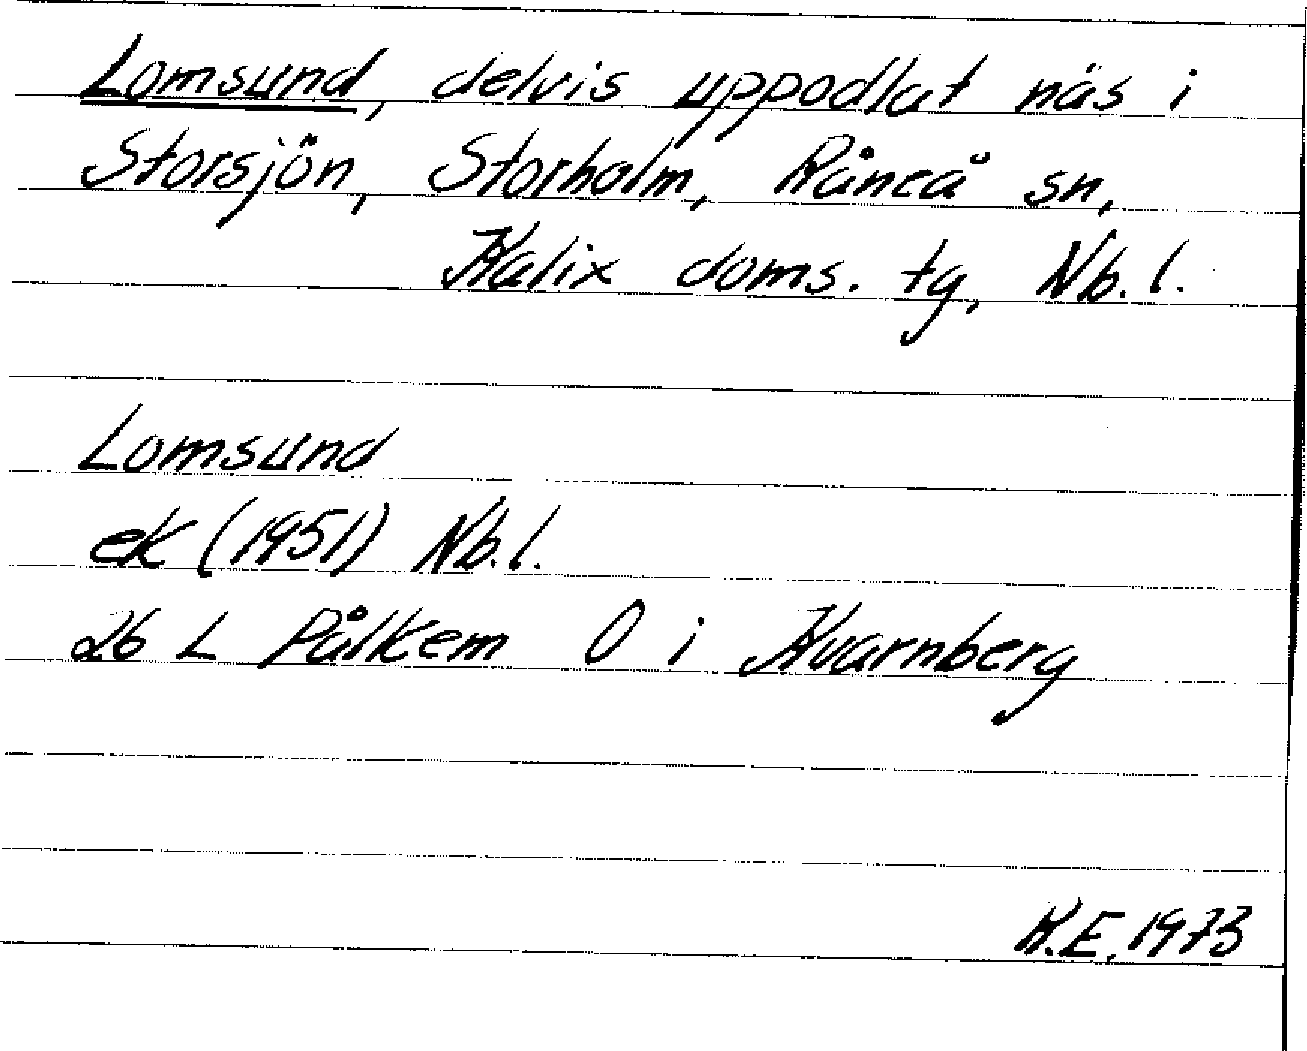 Lomsund, delvis uppodlat näs i
Storsjön, Storholm, Råneå sn,
Kalix doms. tg, Nb. l.
Lomsund
ek (1951) Nb. l.
26 L Pålkem O i Kvarnberg
K.E. 1973